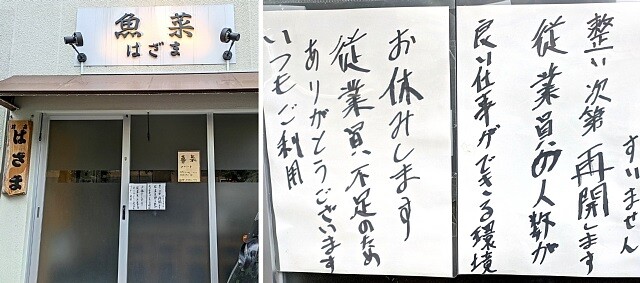 魚菜
はざま
はざま
いつもご利用
ありがとうございます
従業員不足のため
お休みします
良い仕事ができる環境
従業員の人数が
整い次第再開します
すいません